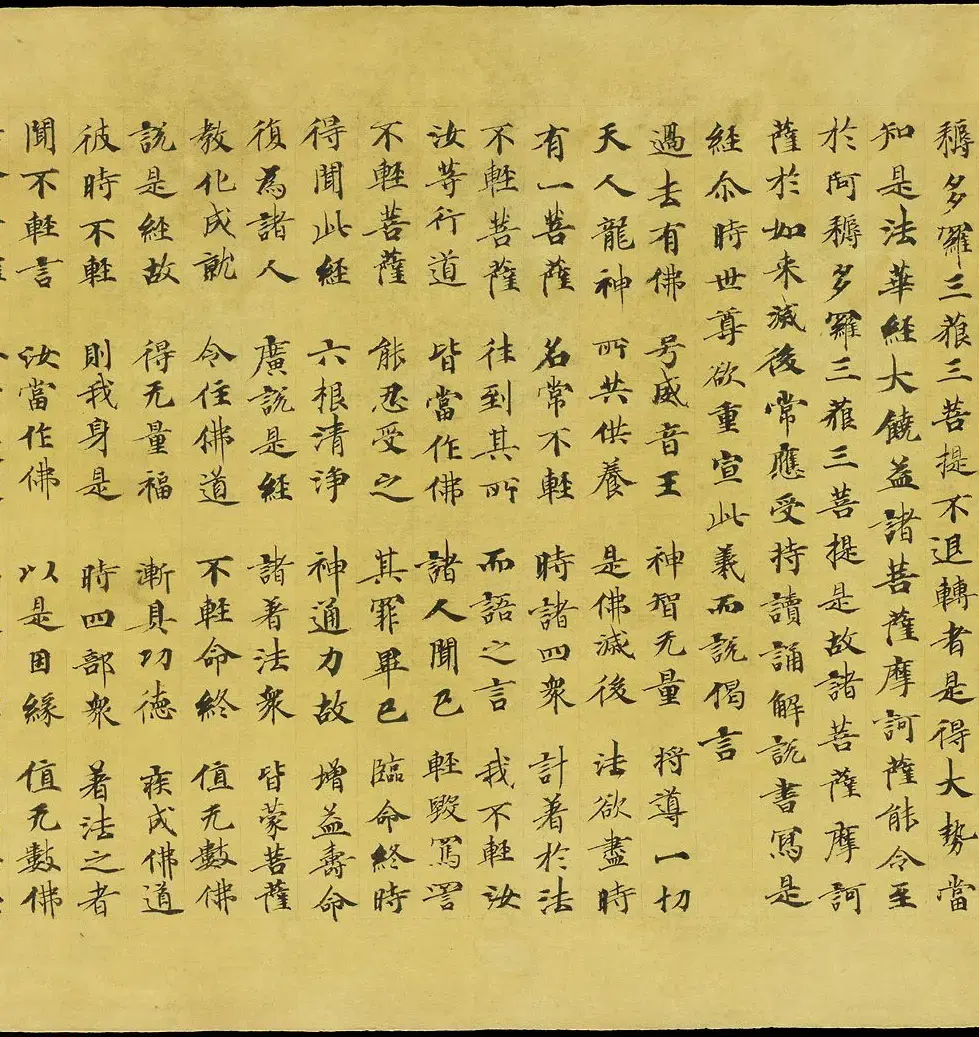 耨多羅三藐三菩提不退轉者是得大勢當
知是法華経大饒益諸菩薩摩訶薩能令至
於阿耨多羅三藐三菩提是故諸菩薩摩訶
薩於如来滅後常應受持讀誦解說書寫是
経尒時世尊欲重宣此義而說偈言
過去有佛 号威音王 神智无量 将導一切
天人龍神 所共供養 是佛滅後 法欲盡時
有一菩薩 名常不軽 時諸四衆 計著於法
不軽菩薩 往到其所 而語之言 我不軽汝
汝等行道 皆當作佛 諸人聞已 軽毀罵詈
不軽菩薩 能忍受之 其罪畢已 臨命終時
得聞此経 六根清淨 神通力故 增益壽命
復為諸人 廣說是経 諸著法衆 皆蒙菩薩
教化成就 令住佛道 不軽命終 值无數佛
說是経故 得无量福 漸具功德 疾成佛道
彼時不軽 則我身是 時四部衆 著法之者
聞不軽言 汝當作佛 以是因緣 值无數佛